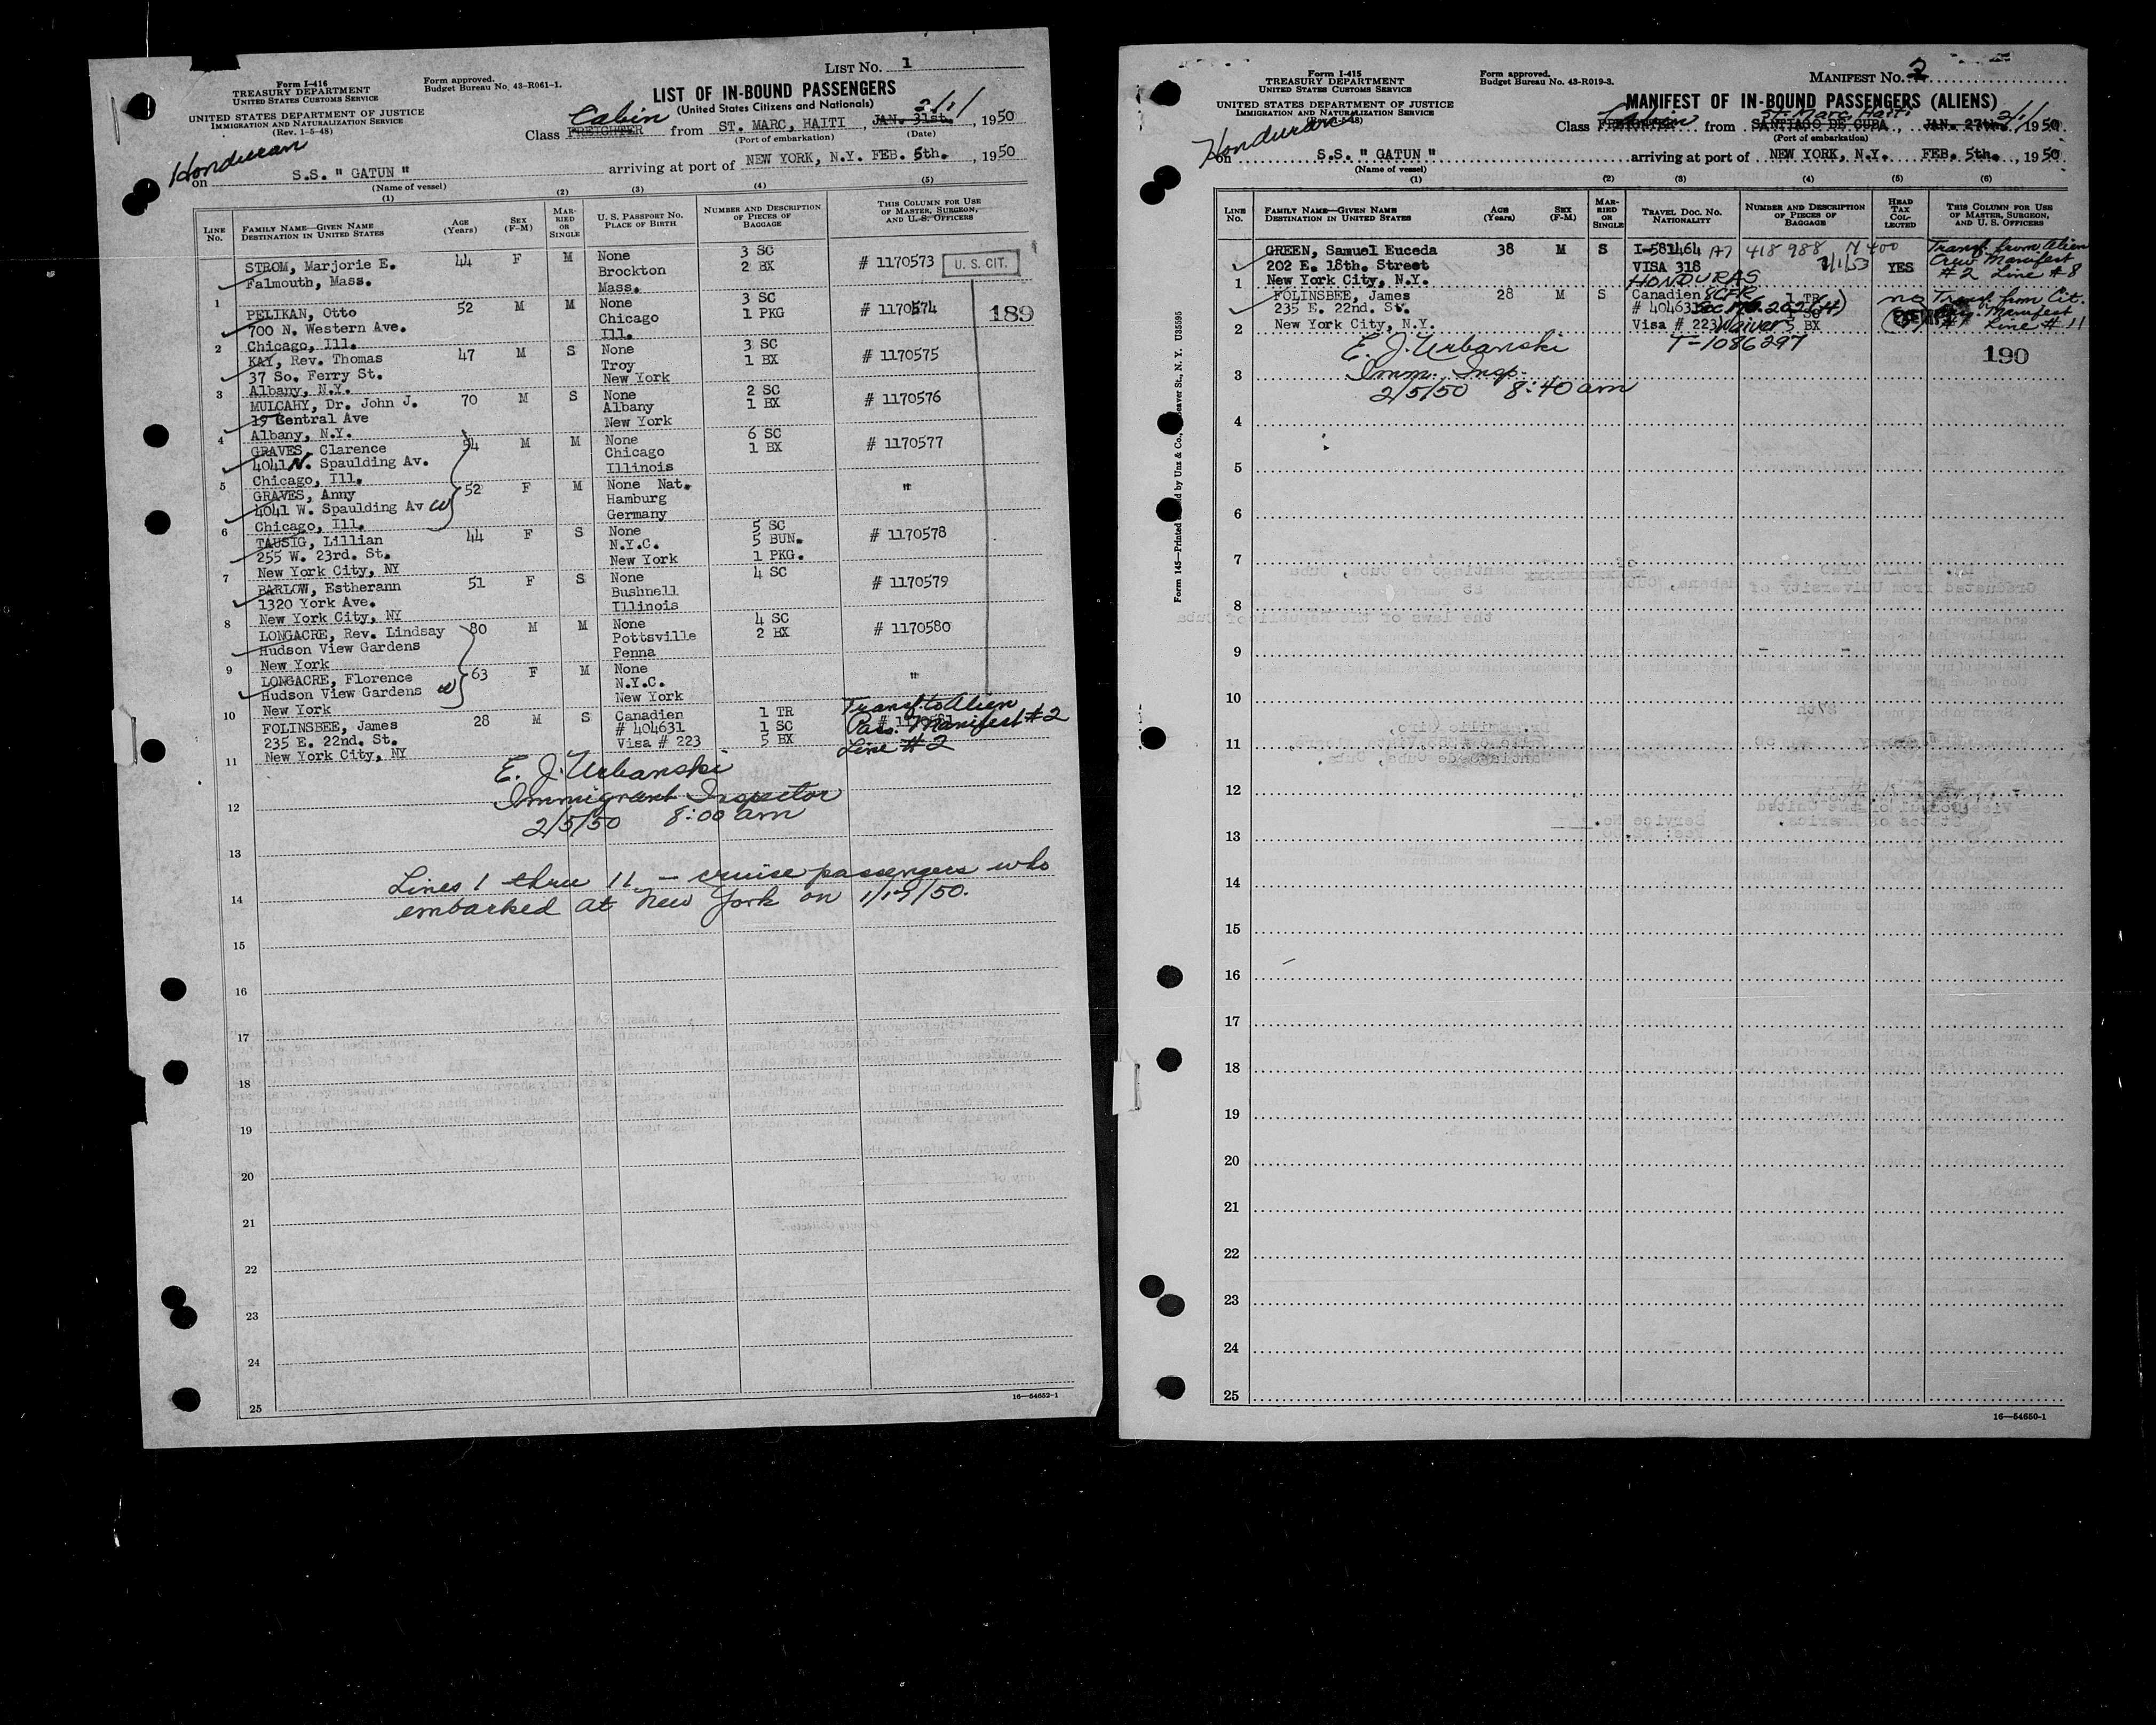 LIST NO. 1
Form I-416
TREASURY DEPARTMENT
UNITED STATES CUSTOMS SERVICE
Form approved.
Budget Bureau No. 43-R061-1.
UNITED STATES DEPARTMENT OF JUSTICE
IMMIGRATION AND NATURALIZATION SERVICE
(Rev. 1-5-48)
LIST OF IN-BOUND PASSENGERS
(United States Citizens and Nationals)
Cabin 2/1/
Class FREIGHTER from ST. MARC, HAITI, JAN. 31st., 1950
(Port of embarkation) (Date)
Honduran
on S.S. " GATUN " arriving at port of NEW YORK, N.Y. FEB. 5th., 1950
(Name of vessel)
(1) (2) (3) (4) (5)
LINE No. FAMILY NAME—GIVEN NAME DESTINATION IN UNITED STATES AGE (Years) SEX (F-M) MARRIED OR SINGLE U. S. PASSPORT NO. PLACE OF BIRTH NUMBER AND DESCRIPTION OF PIECES OF BAGGAGE THIS COLUMN FOR USE OF MASTER, SURGEON, AND U. S. OFFICERS
STROM, Marjorie E. 44 F M None 3 SC # 1170573 U. S. CIT.
Falmouth, Mass. Brockton 2 BX
1 Mass.
PELIKAN, Otto 52 M M None 3 SC # 1170574 189
700 N. Western Ave. Chicago 1 PKG
2 Chicago, Ill. Ill.
KAY, Rev. Thomas 47 M S None 3 SC # 1170575
37 So. Ferry St. Troy 1 BX
3 Albany, N.Y. New York
MULCAHY, Dr. John J. 70 M S None 2 SC # 1170576
19 Central Ave Albany 1 BX
4 Albany, N.Y. New York
GRAVES, Clarence 54 M M None 6 SC # 1170577
4041 N. Spaulding Av. Chicago 1 BX
5 Chicago, Ill. Illinois
GRAVES, Anny 52 F M None Nat. "
4041 W. Spaulding Av W Hamburg
6 Chicago, Ill. Germany
TAUSIG, Lillian 44 F S None 5 SC # 1170578
255 W. 23rd. St. N.Y.C. 5 BUN.
7 New York City, NY New York 1 PKG.
BARLOW, Estherann 51 F S None 4 SC # 1170579
1320 York Ave. Bushnell
8 New York City, NY Illinois
LONGACRE, Rev. Lindsay 80 M M None 4 SC # 1170580
Hudson View Gardens Pottsville 2 BX
9 New York Penna
LONGACRE, Florence 63 F M None "
Hudson View Gardens W N.Y.C.
10 New York New York
FOLINSBEE, James 28 M S Canadien 1 TR Transf. to Alien
235 E. 22nd. St. # 404631 1 SC Pass. Manifest # 2
11 New York City, NY Visa # 223 5 BX Line # 2
E. J. Urbanski
12 Immigrant Inspector
2/5/50 8:00 am
13
Lines 1 thru 11 — cruise passengers who
14 embarked at New York on 1/19/50.
15
16
17
18
19
20
21
22
23
24
25
16—54652-1
Form I-415
TREASURY DEPARTMENT
UNITED STATES CUSTOMS SERVICE
Form approved.
Budget Bureau No. 43-R019-3.
MANIFEST No. 2
UNITED STATES DEPARTMENT OF JUSTICE
IMMIGRATION AND NATURALIZATION SERVICE
MANIFEST OF IN-BOUND PASSENGERS (ALIENS)
Cabin St. Marc, Haiti 2/1/
Class FREIGHTER from SANTIAGO DE CUBA, JAN. 27th. 1950
(Port of embarkation)
Honduran
on S.S. " GATUN " arriving at port of NEW YORK, N.Y. FEB. 5th., 1950
(Name of vessel)
(1) (2) (3) (4) (5) (6)
LINE No. FAMILY NAME—GIVEN NAME DESTINATION IN UNITED STATES AGE (Years) SEX (F-M) MARRIED OR SINGLE TRAVEL DOC. NO. NATIONALITY NUMBER AND DESCRIPTION OF PIECES OF BAGGAGE HEAD TAX COLLECTED THIS COLUMN FOR USE OF MASTER, SURGEON, AND U. S. OFFICERS
GREEN, Samuel Euceda 38 M S I-581464 A7 418 988 N 400 Transf. from Alien
202 E. 18th. Street VISA 318 YES Crew Manifest
1 New York City, N.Y. HONDURAS # 2 Line # 8
FOLINSBEE, James 28 M S Canadien 8CFR 1 TR no Transf. from Cit.
235 E. 22nd. St. # 404631 Manifest
2 New York City, N.Y. Visa # 223 Waiver 5 BX # 1 Line # 11
E. J. Urbanski T-1086297 190
3 Imm. Insp.
2/5/50 8:40 am
4
5
6
7
8
9
10
11
12
13
14
15
16
17
18
19
20
21
22
23
24
25
16—54650-1